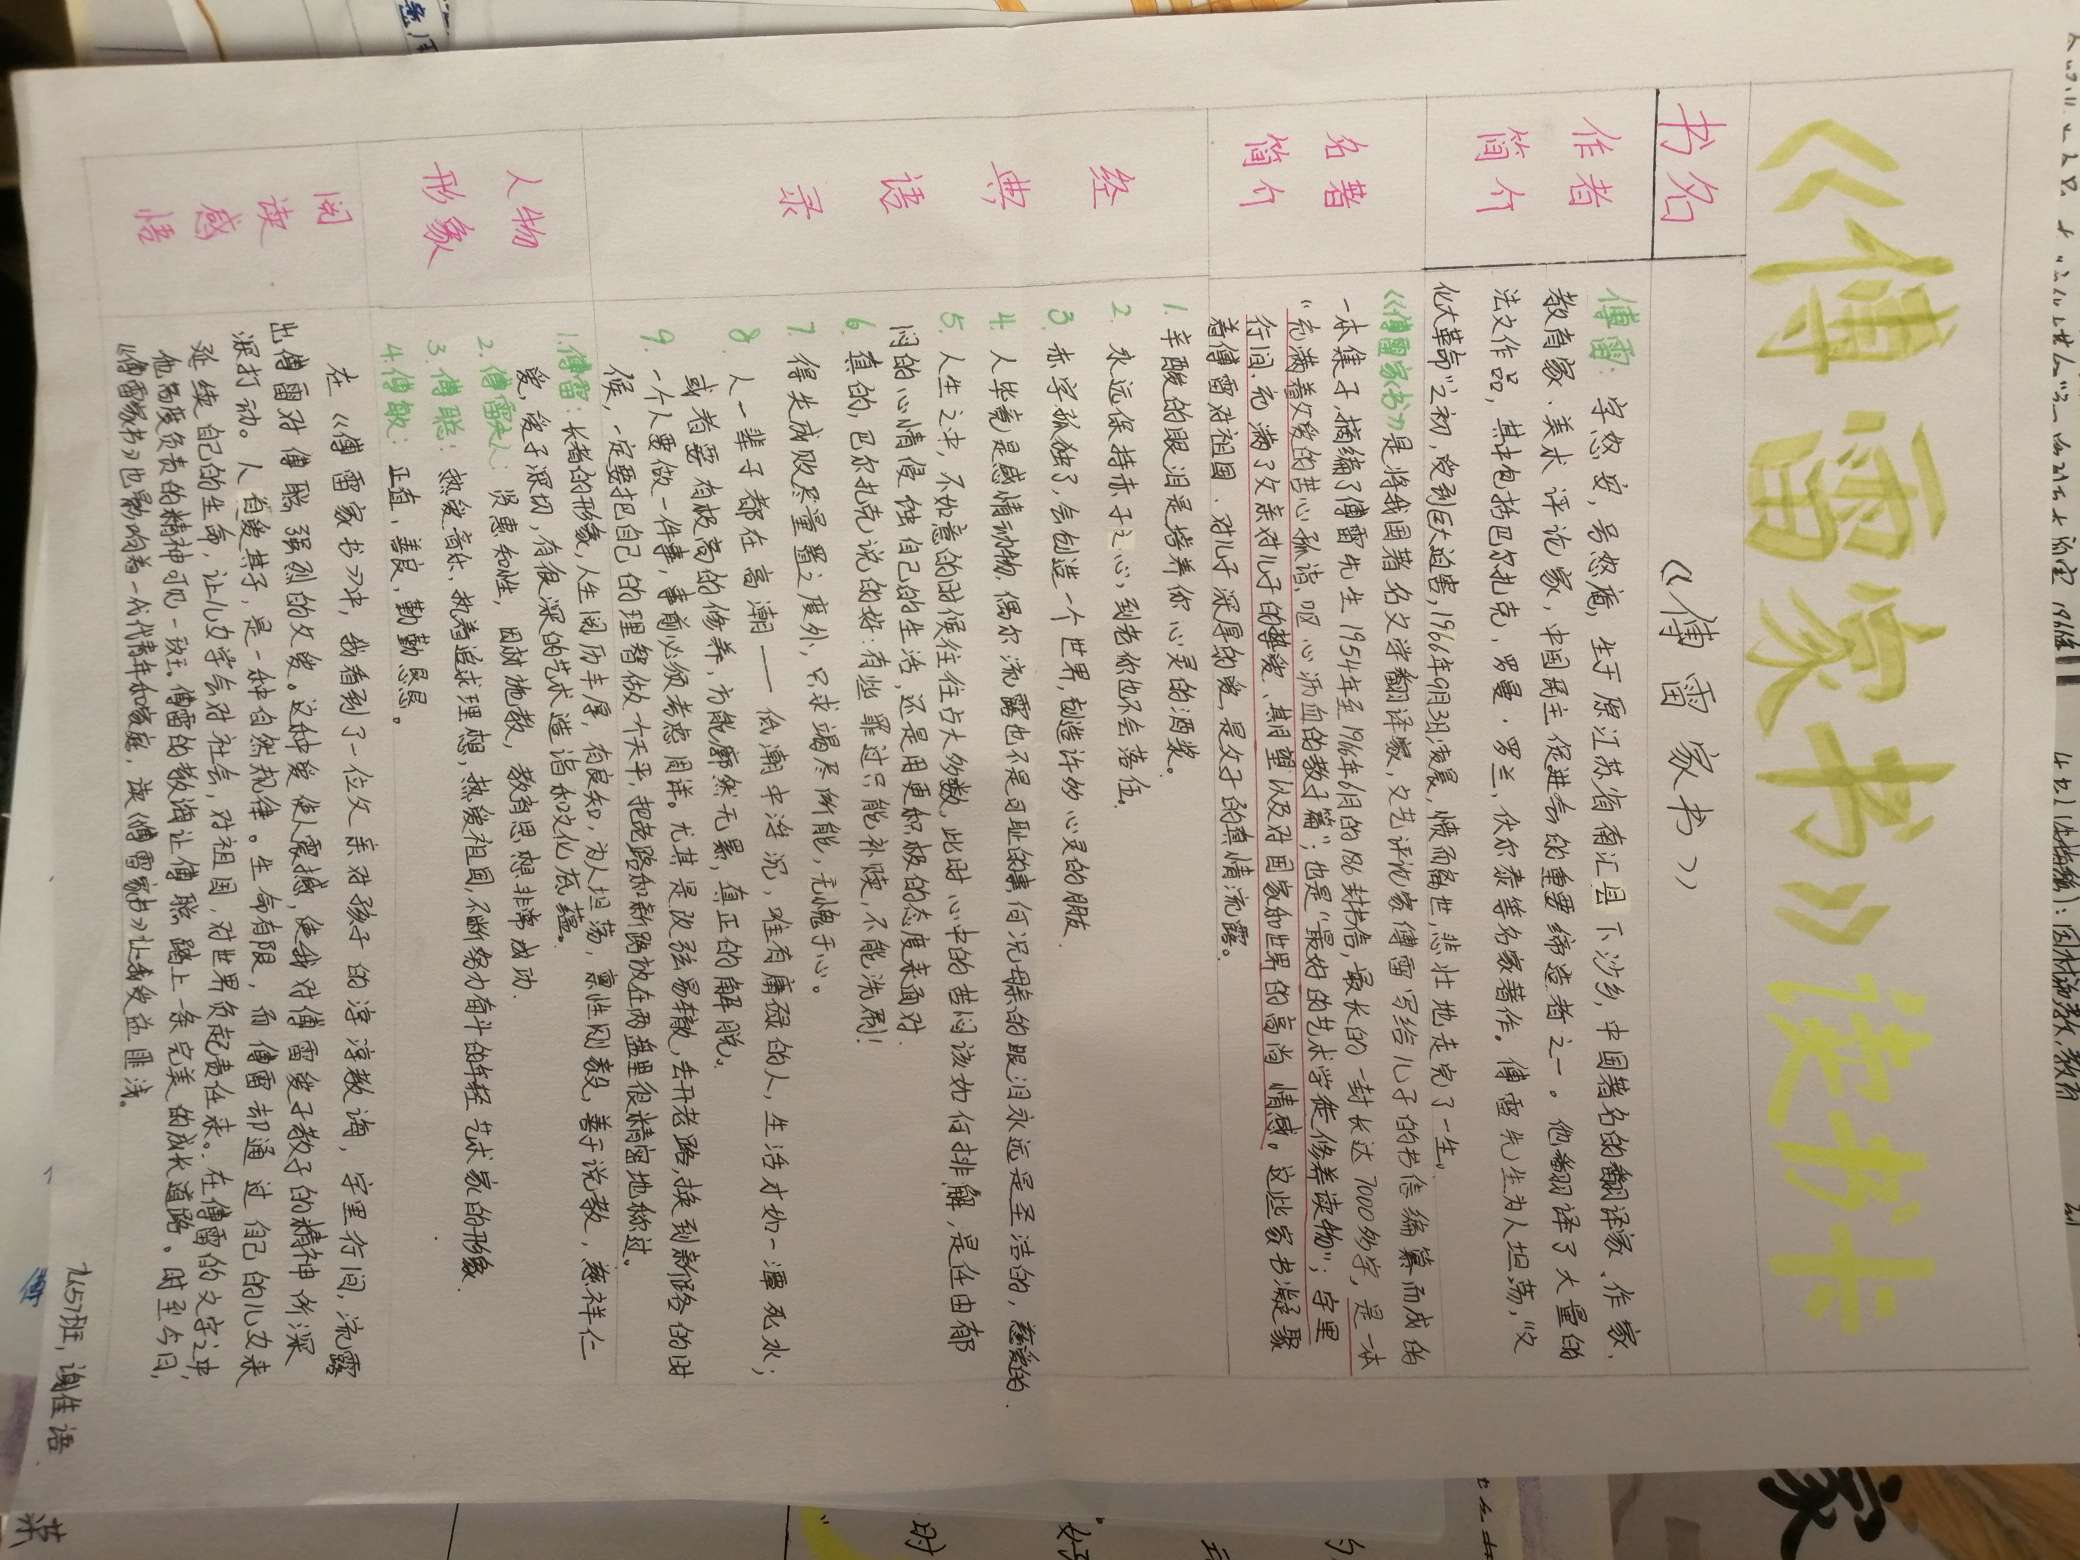 《傅雷家书》读书卡
书名
《傅雷家书》
作者
简介
傅雷：字怒安，号然庵，生于原江苏省南汇县下沙乡，中国著名的翻译家、作家、
教育家、美术评论家，中国民主促进会的重要缔造者之一。他翻译了大量的
法文作品，其中包括巴尔扎克、罗曼·罗兰、伏尔泰等名家著作。傅雷先生为人坦荡，"文
化大革命"之初，受到巨大迫害，1966年9月3日凌晨，愤而离世，悲壮地走完了一生。
名著
简介
《傅雷家书》是将我国著名文学翻译家、文艺评论家傅雷写给儿子的书信编纂而成的
一本集子，摘编了傅雷先生1954年至1966年6月的186封书信，最长的一封长达7000多字，是一本
"充满着父爱的苦心孤诣，呕心沥血的教子篇"；也是"最好的艺术学徒修养读物"；字里
行间，充满了父亲对儿子的挚爱、期望以及对国家和世界的高尚情感。这些家书凝聚
着傅雷对祖国、对儿子深厚的爱，是父子的真情流露。
经
典
语
录
1. 辛酸的眼泪是培养你心灵的酒浆。
2. 永远保持赤子之心，到老你也不会落伍。
3. 赤字孤独了，会创造一个世界，创造许多心灵的朋友
4. 人毕竟是感情动物，偶尔流露也不是可耻的事，何况母亲的眼泪永远是圣洁的，慈爱的
5. 人生之中，不如意的时候往往占大多数，此时心中的苦闷该如何排解，是任由郁
闷的心情侵蚀自己的生活，还是用更积极的态度来面对
6. 真的，巴尔扎克说的好：有些罪过只能补赎，不能洗刷！
7. 得失成败尽量置之度外，只求竭尽所能，无愧于心。
8. 人一辈子都在高潮——低潮中浮沉，唯有庸碌的人，生活才如一潭死水；
或者要有极高的修养，方能廓然无累，真正的解脱。
9. 一个人要做一件事，事前必须考虑周详。尤其是改弦易辙，丢开老路，换到新路的时
候，一定要把自己的理智做一个天平，把老路和新路放在两盘里很精密地称过。
人物
形象
1. 傅雷：长者的形象，人生阅历丰厚，有良知，为人坦荡，禀性刚毅，善于说教，慈祥仁
爱，爱子深切，有很深的艺术造诣和文化底蕴。
2. 傅雷夫人：贤惠知性，因材施教，教育思想非常成功.
3. 傅聪：热爱音乐，执着追求理想，热爱祖国，不断努力奋斗的年轻艺术家的形象.
4. 傅敏：正直，善良，勤勤恳恳。
阅
读
感
悟
在《傅雷家书》中，我看到了一位父亲对孩子的淳淳教诲，字里行间，流露
出傅雷对傅聪强烈的父爱。这种爱使人震撼，使我对傅雷爱子教子的精神所深
深打动。人首爱其子，是一种自然规律。生命有限，而傅雷却通过自己的儿力来
延续自己的生命，让儿力学会对社会，对祖国，对世界负起责任来。在傅雷的文字之中，
他高度负责的精神可见一斑。傅雷的教诲让傅聪踏上一条完美的成长道路。时至今日，
《傅雷家书》也影响着一代代青年和家庭，读《傅雷家书》让我受益匪浅。
九157班，谢佳语